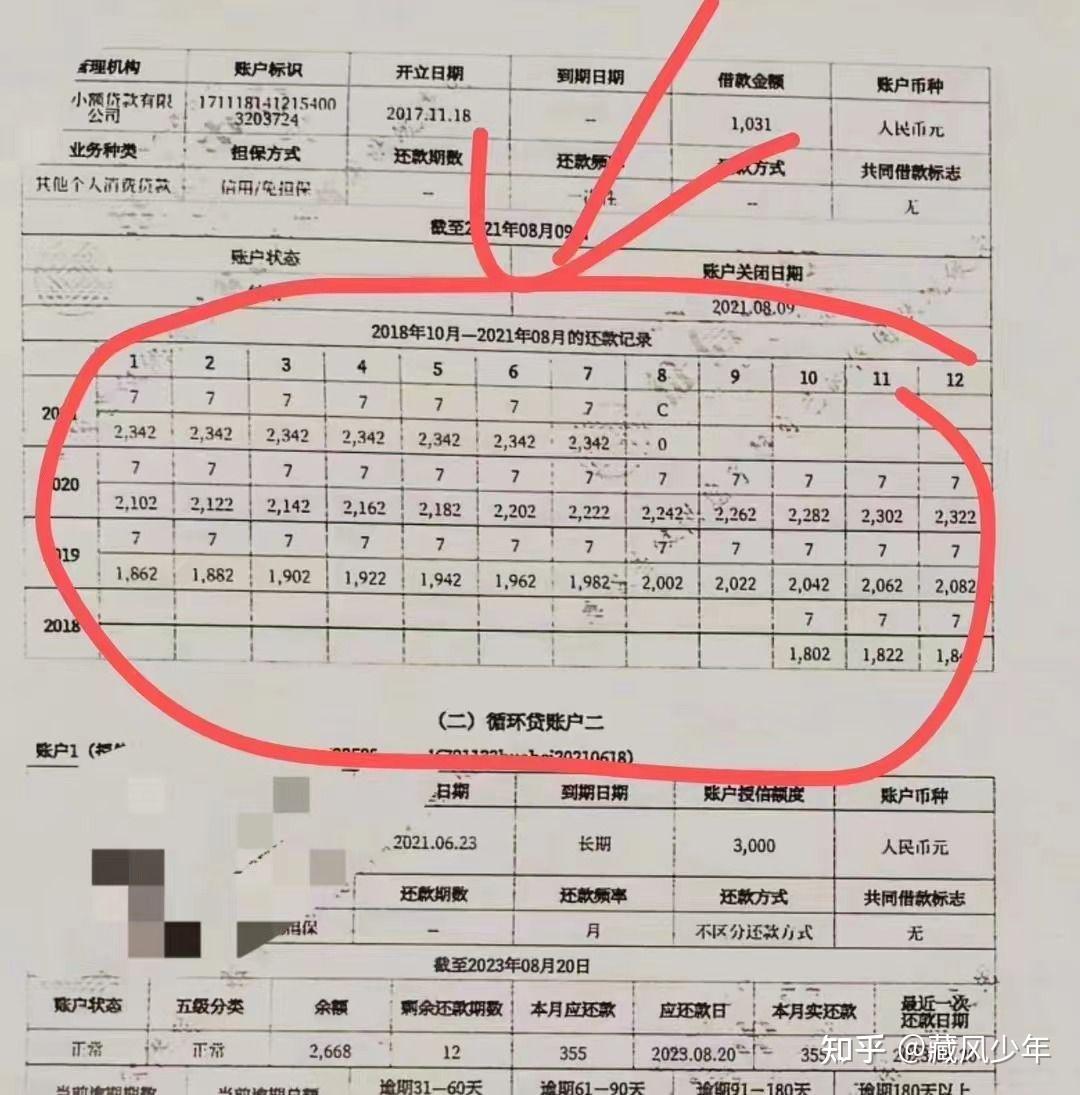 管理机构 账户标识 开立日期 到期日期 借款金额 账户币种
小额贷款有限公司 1711181412154003203724 2017.11.18 -- 1,031 人民币元
业务种类 担保方式 还款期数 还款频率 还款方式 共同借款标志
其他个人消费贷款 信用/免担保 -- 一次性 -- 无
截至2021年08月09日
账户状态 账户关闭日期
2021.08.09
2018年10月—2021年08月的还款记录
1 2 3 4 5 6 7 8 9 10 11 12
2021 7 7 7 7 7 7 7 C
2,342 2,342 2,342 2,342 2,342 2,342 2,342 0
2020 7 7 7 7 7 7 7 7 7 7 7 7
2,102 2,122 2,142 2,162 2,182 2,202 2,222 2,242 2,262 2,282 2,302 2,322
2019 7 7 7 7 7 7 7 7 7 7 7 7
1,862 1,882 1,902 1,922 1,942 1,962 1,982 2,002 2,022 2,042 2,062 2,082
2018 7 7 7
1,802 1,822
（二）循环贷账户二
账户1
日期 到期日期 账户授信额度 账户币种
2021.06.23 长期 3,000 人民币元
还款期数 还款频率 还款方式 共同借款标志
担保 -- 月 不区分还款方式 无
截至2023年08月20日
账户状态 五级分类 余额 剩余还款期数 本月应还款 应还款日 本月实还款 最近一次还款日期
正常 正常 2,668 12 355 2023.08.20 355
当前逾期期数 当前逾期总额 逾期31—60天 逾期61—90天 逾期91—180天 逾期180天以上
知乎 @藏风少年